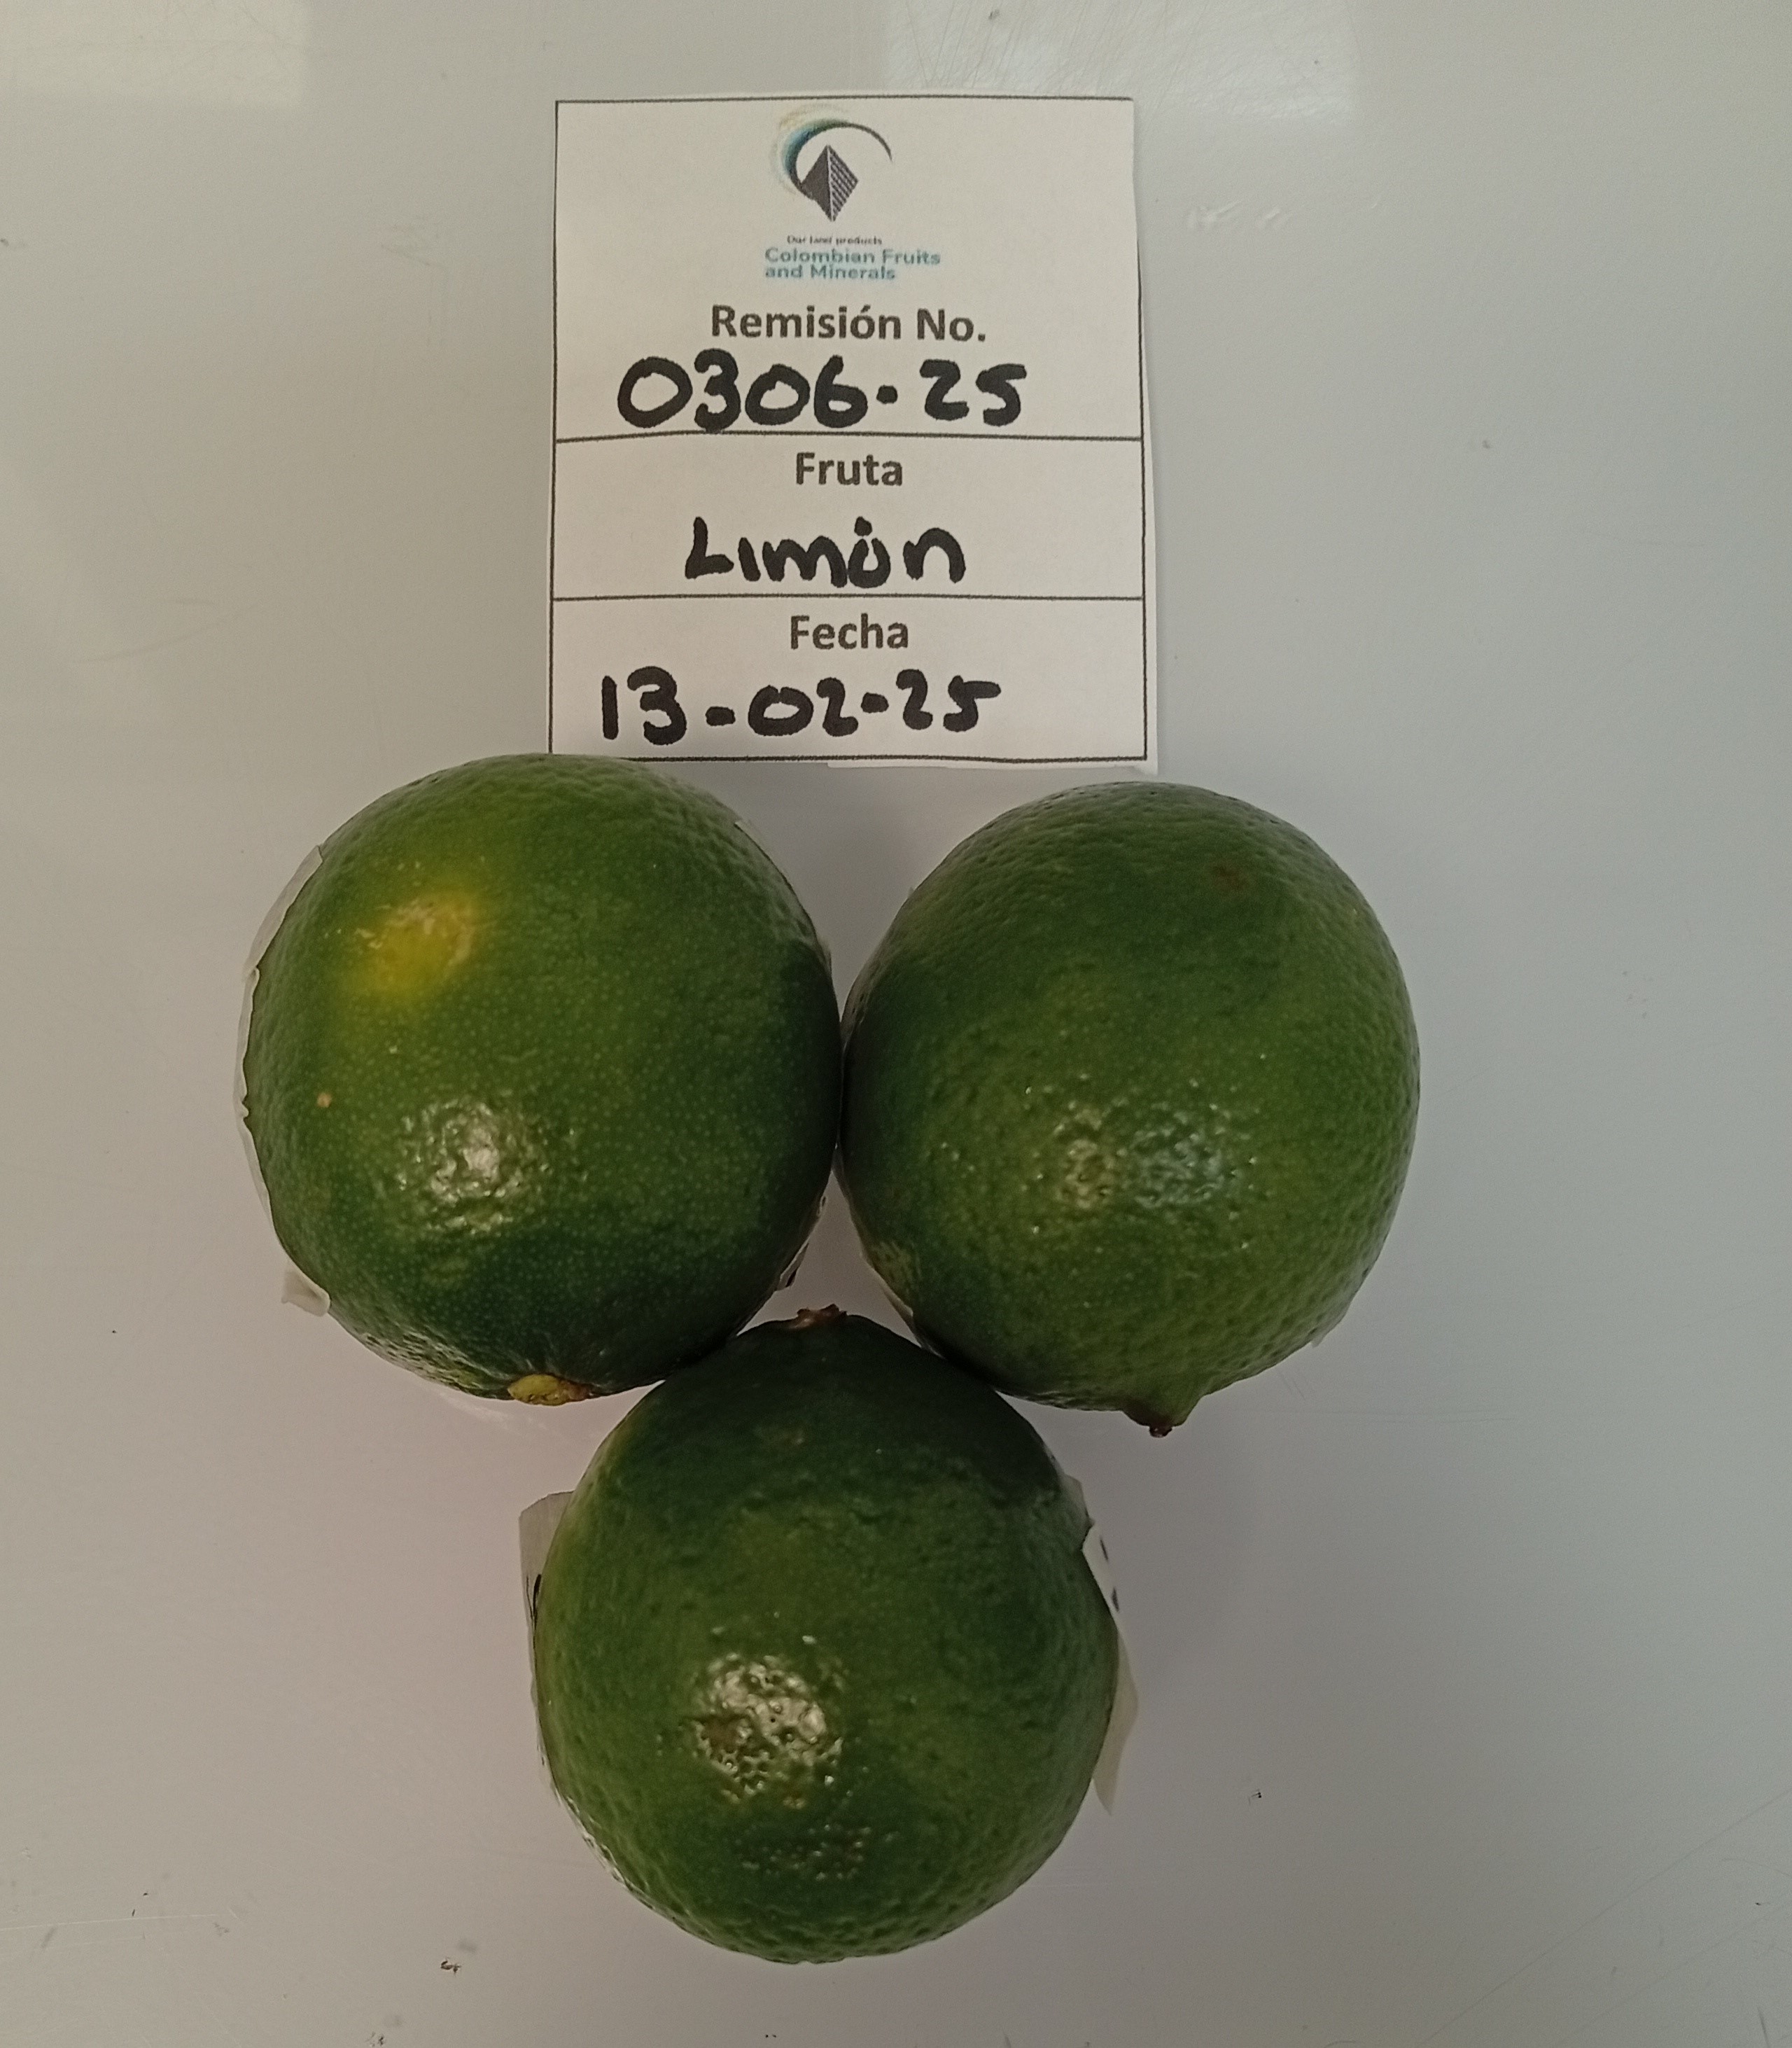 Our land products
Colombian Fruits
and Minerals
Remisión No.
0306-25
Fruta
Limón
Fecha
13-02-25